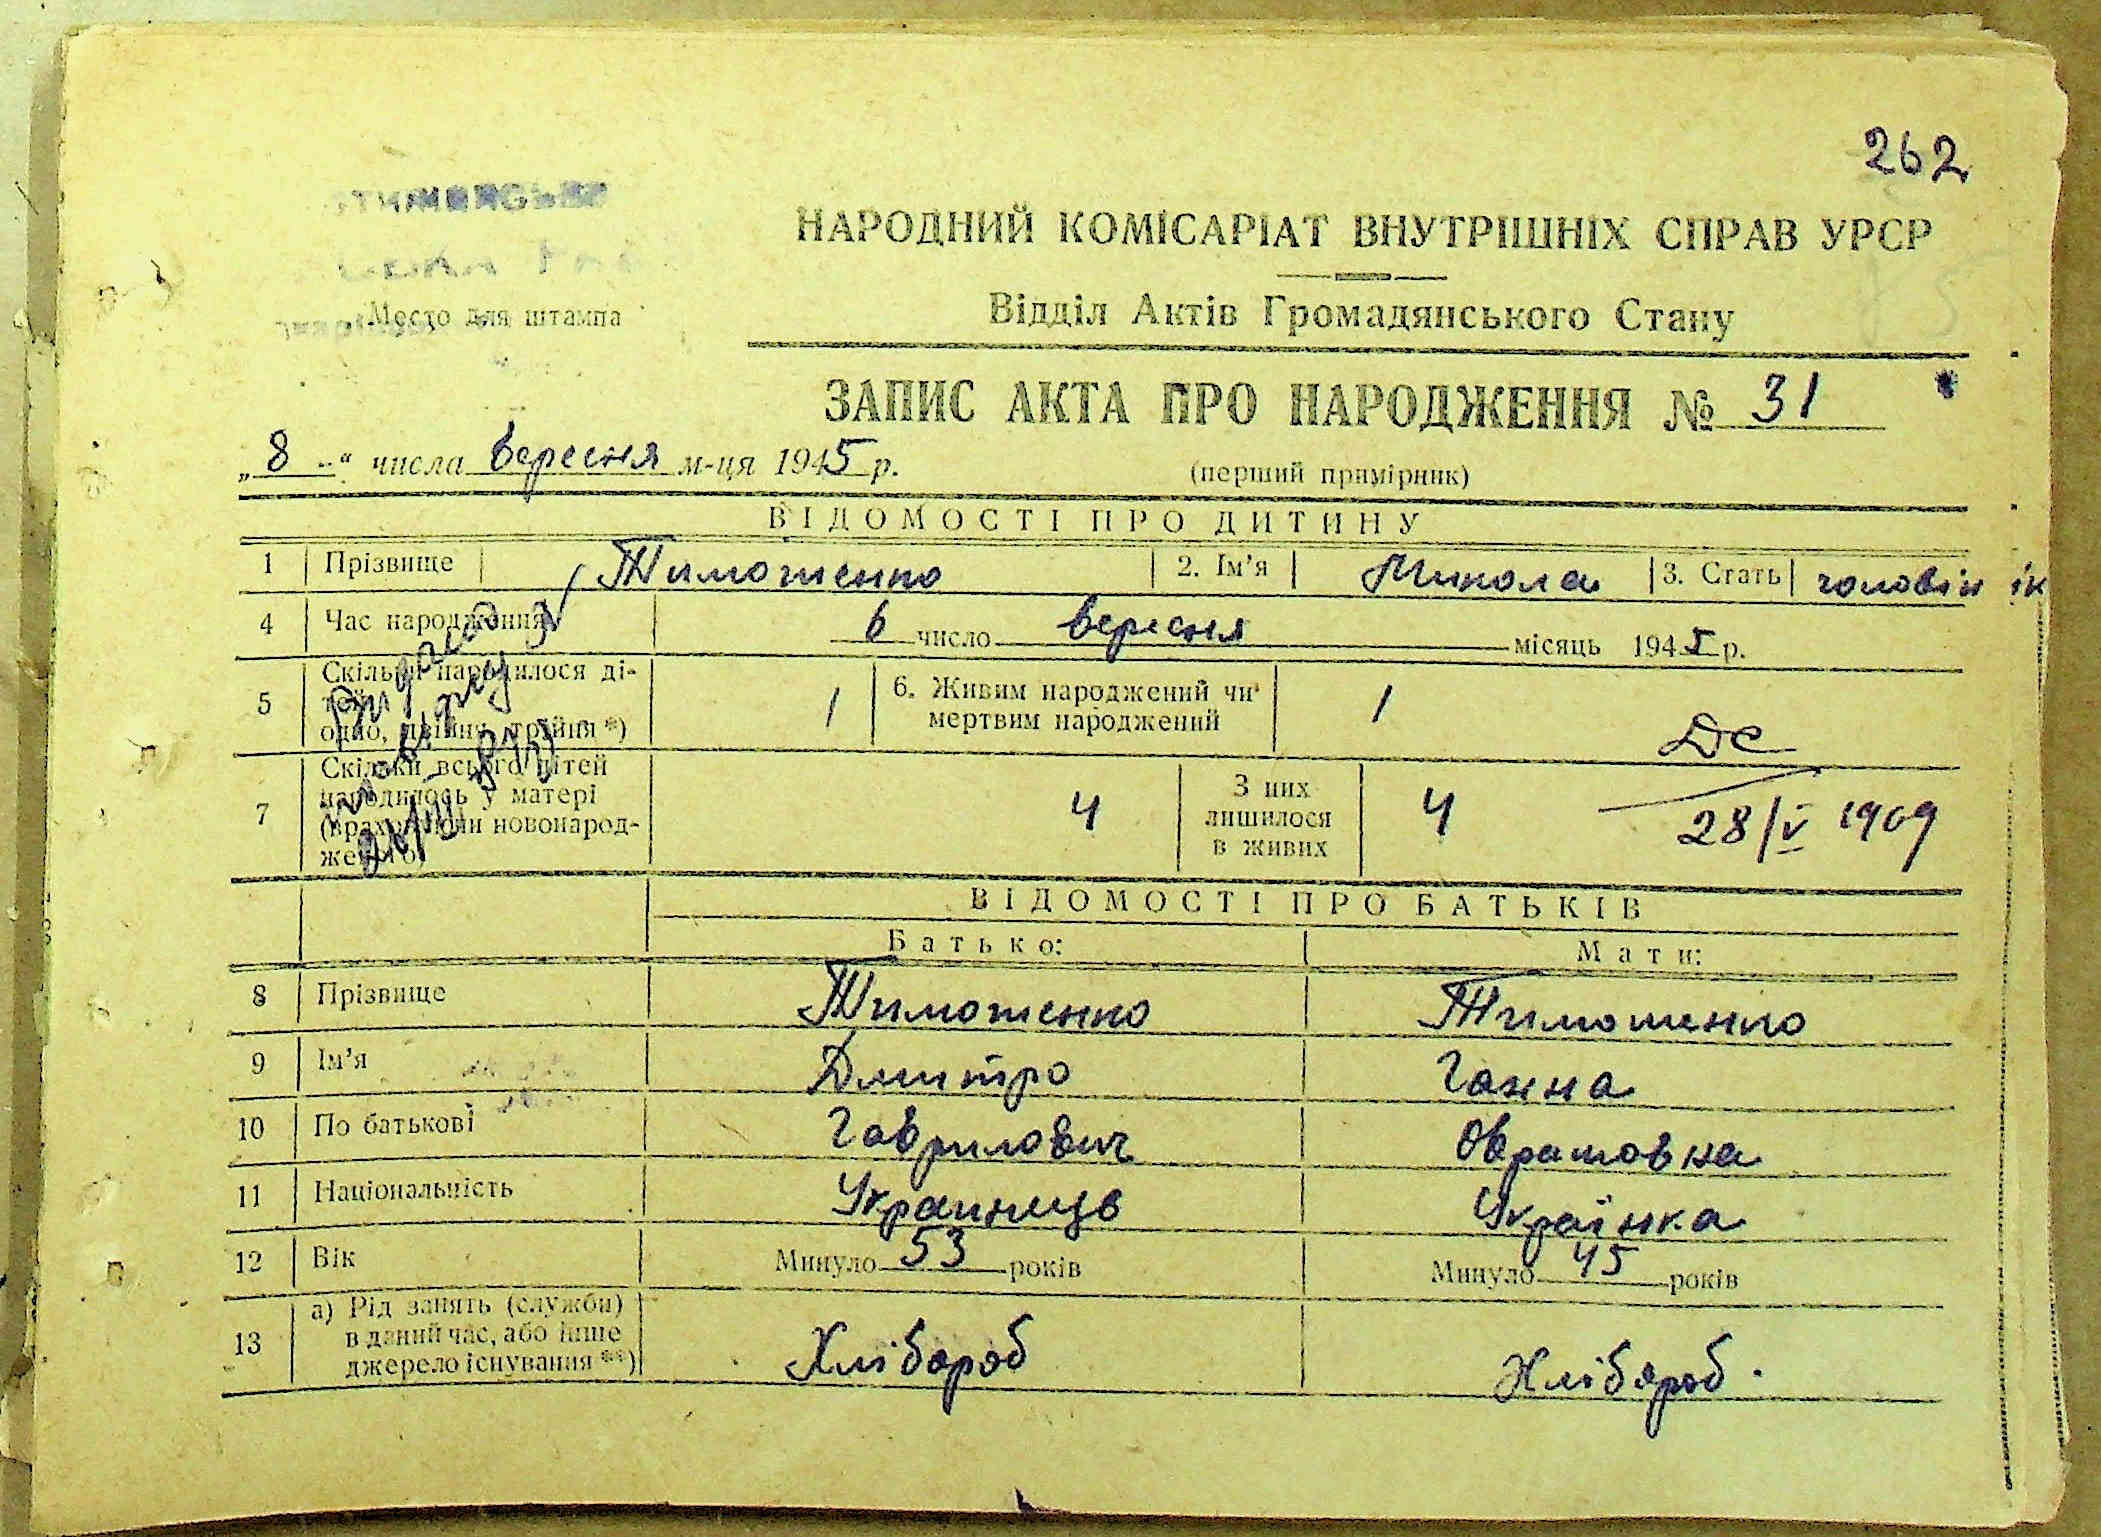 262
НАРОДНИЙ КОМІСАРІАТ ВНУТРІШНІХ СПРАВ УРСР
Место для штампа
Відділ Актів Громадянського Стану
ЗАПИС АКТА ПРО НАРОДЖЕННЯ № 31
„8“ числа вересня м-ця 1945 р.
(перший примірник)
ВІДОМОСТІ ПРО ДИТИНУ
1 Прізвище Тимошенко 2. Ім'я Микола 3. Стать чоловік
4 Час народження 6 число вересня місяць 1945 р.
5 Скільки народилося ді-
тей:
одно, двійня, трійня *)
1
6. Живим народжений чи
мертвим народжений
1
ДС
28/V 1909
7 Скільки всього дітей
народилось у матері
(враховуючи новонарод-
женого)
4
З них
лишилося
в живих
4
ВІДОМОСТІ ПРО БАТЬКІВ
Батько: Мати:
8 Прізвище Тимошенко Тимошенко
9 Ім'я Дмитро Ганна
10 По батькові Гаврилович Оврамовна
11 Національність Украинець Українка
12 Вік Минуло 53 років Минуло 45 років
13 а) Рід занять (служби)
в даний час, або інше
джерело існування **)
Хлібороб Хлібороб.